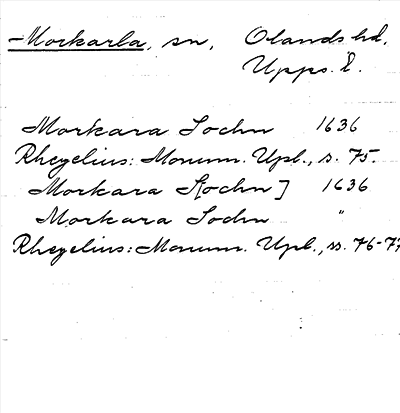 -Morkarla, sn, Olands hd,
Upps. l.
Morkara Sochn 1636
Rhezelius: Monum. Upl., s. 75.
Morkara S[ochn] 1636
Morkara Sochn "
Rhezelius: Monum. Upl., ss. 76-77